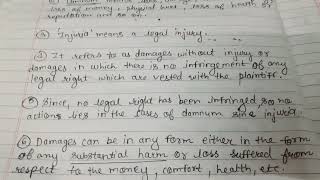 ② Damnum means loss, da
loss of money, physical hurt, loss of health, of
reputation and so on.
③ 'Injuria' means a legal injury....
④ It refers to as damages without injury or
damages in which there is no infringement of any
legal right which are vested with the plaintiff.
⑤ Since, no legal right has been infringed so no
actions lies in the cases of damnum sine injuria.
⑥ Damages can be in any form either in the form
of any substantial harm or loss suffered from
respect to the money, comfort, health, etc.